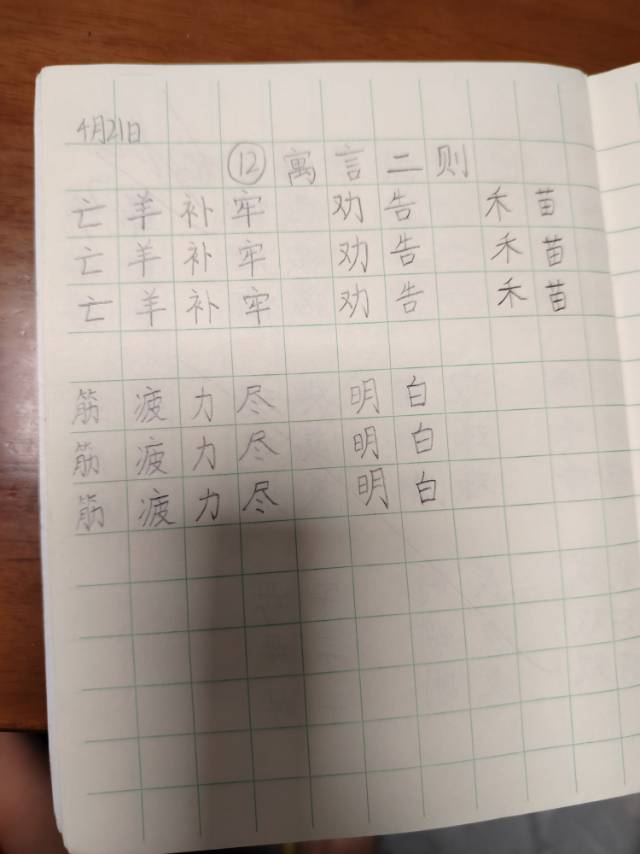 4月21日
⑫ 寓言二则
亡羊补牢 劝告 禾苗
亡羊补牢 劝告 禾苗
亡羊补牢 劝告 禾苗
筋疲力尽 明白
筋疲力尽 明白
筋疲力尽 明白